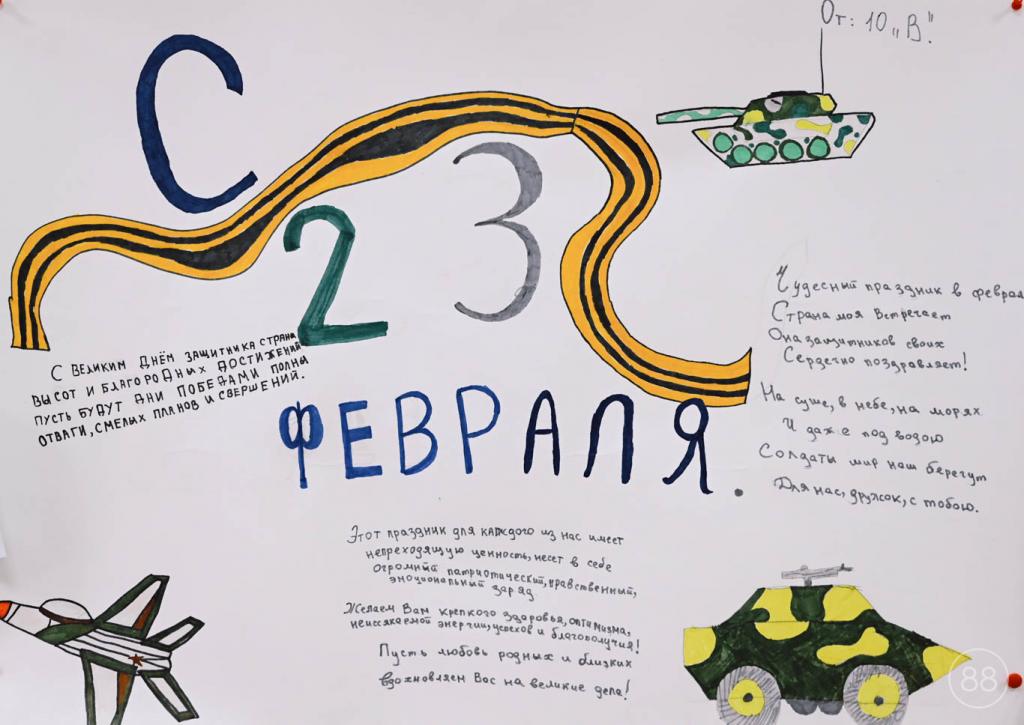 От: 10 „В".
С
23
ФЕВРАЛЯ.
С ВЕЛИКИМ ДНЁМ ЗАЩИТНИКА СТРАНЫ
ВЫСОТ И БЛАГОРОДНЫХ ДОСТИЖЕНИЙ
ПУСТЬ БУДУТ ДНИ ПОБЕДАМИ ПОЛНЫ
ОТВАГИ, СМЕЛЫХ ПЛАНОВ И СВЕРШЕНИЙ.
Чудесный праздник в феврал
Страна моя встречает
Она защитников своих
Сердечно поздравляет!
На суше, в небе, на морях
И даже под водою
Солдаты мир наш берегут
Для нас, дружок, с тобою.
Этот праздник для каждого из нас имеет
непреходящую ценность, несет в себе
огромный патриотический, нравственный,
эмоциональный заряд
Желаем Вам крепкого здоровья, оптимизма,
неиссякаемой энергии, успехов и благополучия!
Пусть любовь родных и близких
вдохновляем Вас на великие дела!
88